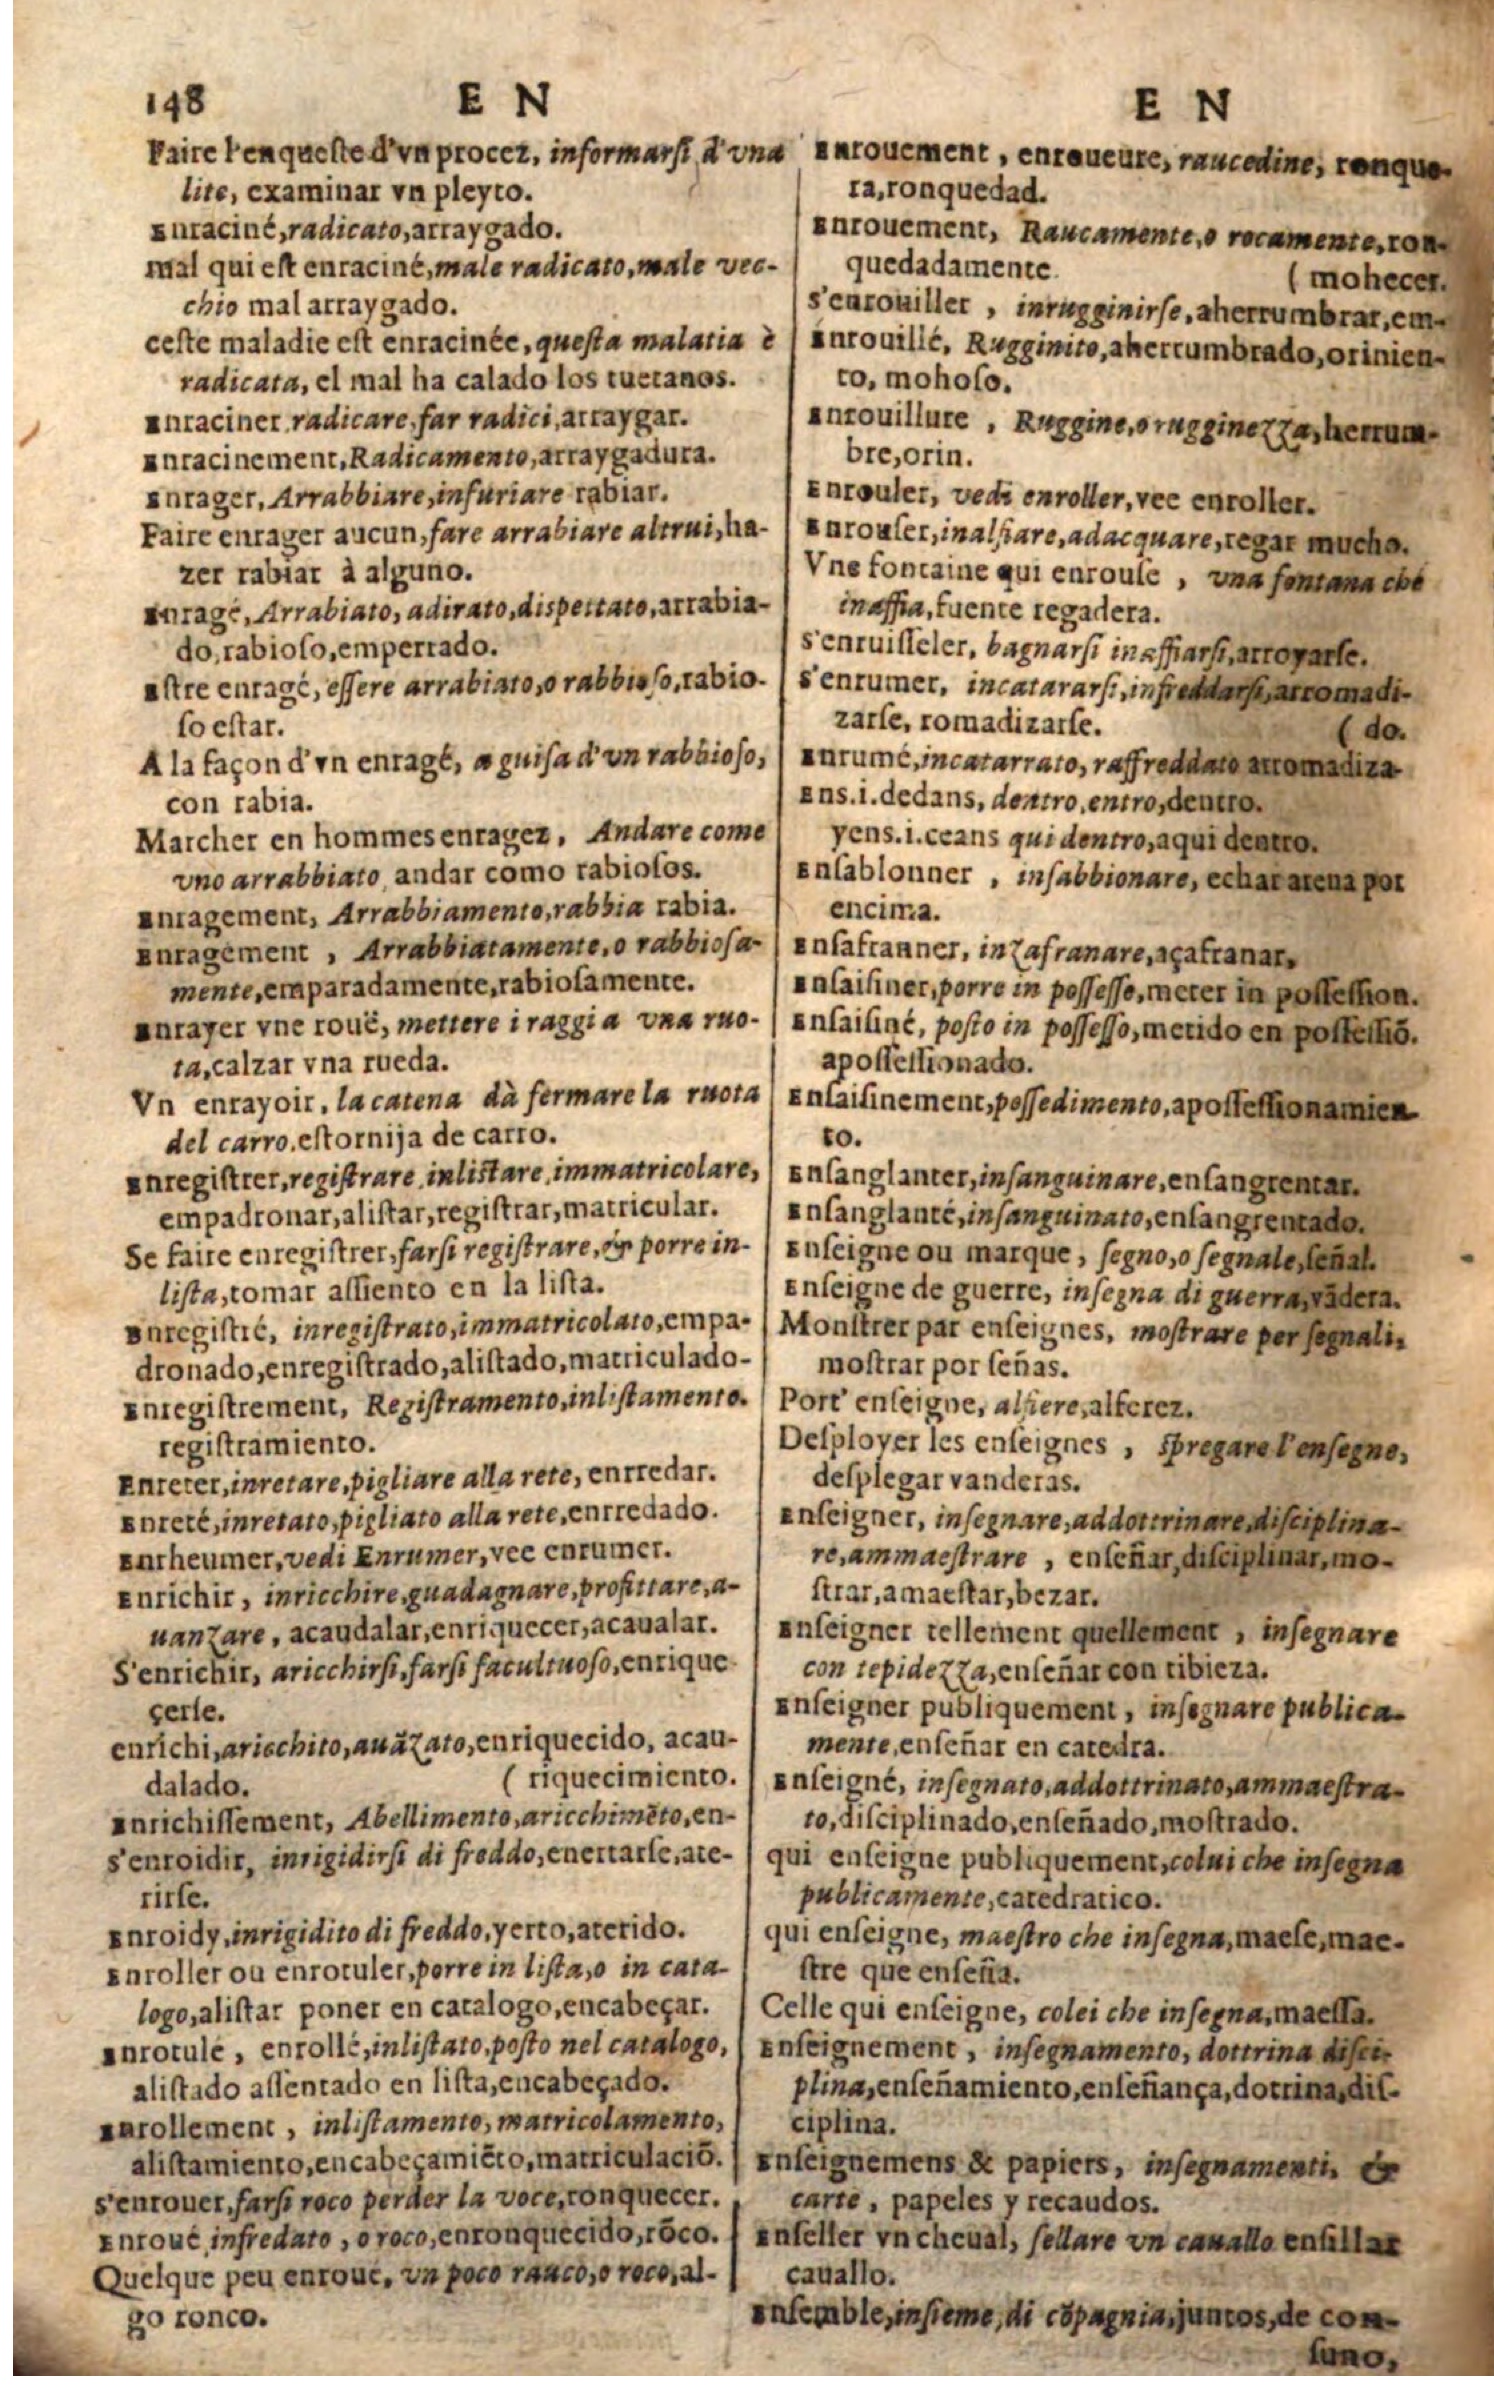 148 E N
Faire l'enqueste d'vn procez, informarsi d'vna
lite, examinar vn pleyto.
Enraciné, radicato, arraygado.
mal qui est enraciné, male radicato, male vec-
chio mal arraygado.
ceste maladie est enracinée, questa malatia è
radicata, el mal ha calado los tuetanos.
Enraciner radicare, far radici, arraygar.
Enracinement, Radicamento, arraygadura.
Enrager, Arrabbiare, infuriare rabiar.
Faire enrager aucun, fare arrabiare altrui, ha-
zer rabiar à alguno.
Enragé, Arrabiato, adirato, dispettato, arrabia-
do, rabioso, emperrado.
Estre enragé, essere arrabiato, o rabbioso, rabio-
so estar.
A la façon d'vn enragé, a guisa d'vn rabbioso,
con rabia.
Marcher en hommes enragez, Andare come
vno arrabbiato, andar como rabiosos.
Enragement, Arrabbiamento, rabbia rabia.
Enragement, Arrabbiatamente, o rabbiosa-
mente, emparadamente, rabiosamente.
Enrayer vne rouë, mettere i raggi a vna ruo-
ta, calzar vna rueda.
Vn enrayoir, la catena dà fermare la ruota
del carro, estornija de carro.
Enregistrer, registrare, inlistare, immatricolare,
empadronar, alistar, registrar, matricular.
Se faire enregistrer, farsi registrare, & porre in-
lista, tomar assiento en la lista.
Enregistré, inregistrato, immatricolato, empa-
dronado, enregistrado, alistado, matriculado-
Enregistrement, Registramento, inlistamento.
registramiento.
Enreter, inretare, pigliare alla rete, enrredar.
Enreté, inretato, pigliato alla rete, enrredado.
Enrheumer, vedi Enrumer, vee enrumer.
Enrichir, inricchire, guadagnare, profittare, a-
uanzare, acaudalar, enriquecer, acaualar.
S'enrichir, aricchirsi, farsi facultuoso, enrique
çerse.
enrichi, aricchito, auãzato, enriquecido, acau-
dalado. ( riquecimiento.
Enrichissement, Abellimento, aricchimẽto, en-
s'enroidir, inrigidirsi di freddo, enertarse, ate-
rirse.
Enroidy, inrigidito di freddo, yerto, aterido.
Enroller ou enrotuler, porre in lista, o in cata-
logo, alistar poner en catalogo, encabeçar.
Enrotulé, enrollé, inlistato, posto nel catalogo,
alistado assentado en lista, encabeçado.
Enrollement, inlistamento, matricolamento,
alistamiento, encabeçamiẽto, matriculaciõ.
s'enrouer, farsi roco perder la voce, ronquecer.
Enroué infredato, o roco, enronquecido, rõco.
Quelque peu enroué, vn poco rauco, o roco, al-
go ronco.
E N
Enrouement, enroueure, raucedine, ronque-
ra, ronquedad.
Enrouement, Raucamente, o rocamente, ron-
quedadamente ( mohecer.
s'enrouiller, inrugginirse, aherrumbrar, em-
Enrouillé, Rugginito, aherrumbrado, orinien-
to, mohoso.
Enrouillure, Ruggine, o rugginezza, herrum-
bre, orin.
Enrouler, vedi enroller, vee enroller.
Enrouser, inalfiare, adacquare, regar mucho.
Vne fontaine qui enrouse, vna fontana che
inaffia, fuente regadera.
s'enruisseler, bagnarsi inaffiarsi, arroyarse.
s'enrumer, incatararsi, infreddarsi, arromadi-
zarse, romadizarse. ( do.
Enrumé, incatarrato, raffreddato arromadiza-
Ens.i.dedans, dentro, entro, dentro.
yens.i.ceans qui dentro, aqui dentro.
Ensablonner, insabbionare, echar arena por
encima.
Ensafranner, inzafranare, açafranar,
Ensaisiner, porre in possesso, meter in possession.
Ensaisiné, posto in possesso, metido en possessiõ.
apossessionado.
Ensaisinement, possedimento, apossessionamien-
to.
Ensanglanter, insanguinare, ensangrentar.
Ensanglanté, insanguinato, ensangrentado.
Enseigne ou marque, segno, o segnale, señal.
Enseigne de guerre, insegna di guerra, vãdera.
Monstrer par enseignes, mostrare per segnali,
mostrar por señas.
Port' enseigne, alfiere, alferez.
Desployer les enseignes, spregare l'ensegne,
desplegar vanderas.
Enseigner, insegnare, addottrinare, disciplina-
re, ammaestrare, enseñar, disciplinar, mo-
strar, amaestar, bezar.
Enseigner tellement quellement, insegnare
con tepidezza, enseñar con tibieza.
Enseigner publiquement, insegnare publica-
mente, enseñar en catedra.
Enseigné, insegnato, addottrinato, ammaestra-
to, disciplinado, enseñado, mostrado.
qui enseigne publiquement, colui che insegna
publicamente, catedratico.
qui enseigne, maestro che insegna, maese, mae-
stre que enseña.
Celle qui enseigne, colei che insegna, maessa.
Enseignement, insegnamento, dottrina disci-
plina, enseñamiento, enseñança, dotrina, dis-
ciplina.
Enseignemens & papiers, insegnamenti, &
carte, papeles y recaudos.
Enseller vn cheual, sellare vn cauallo ensillar
cauallo.
Ensemble, insieme, di cõpagnia, juntos, de con-
suno,